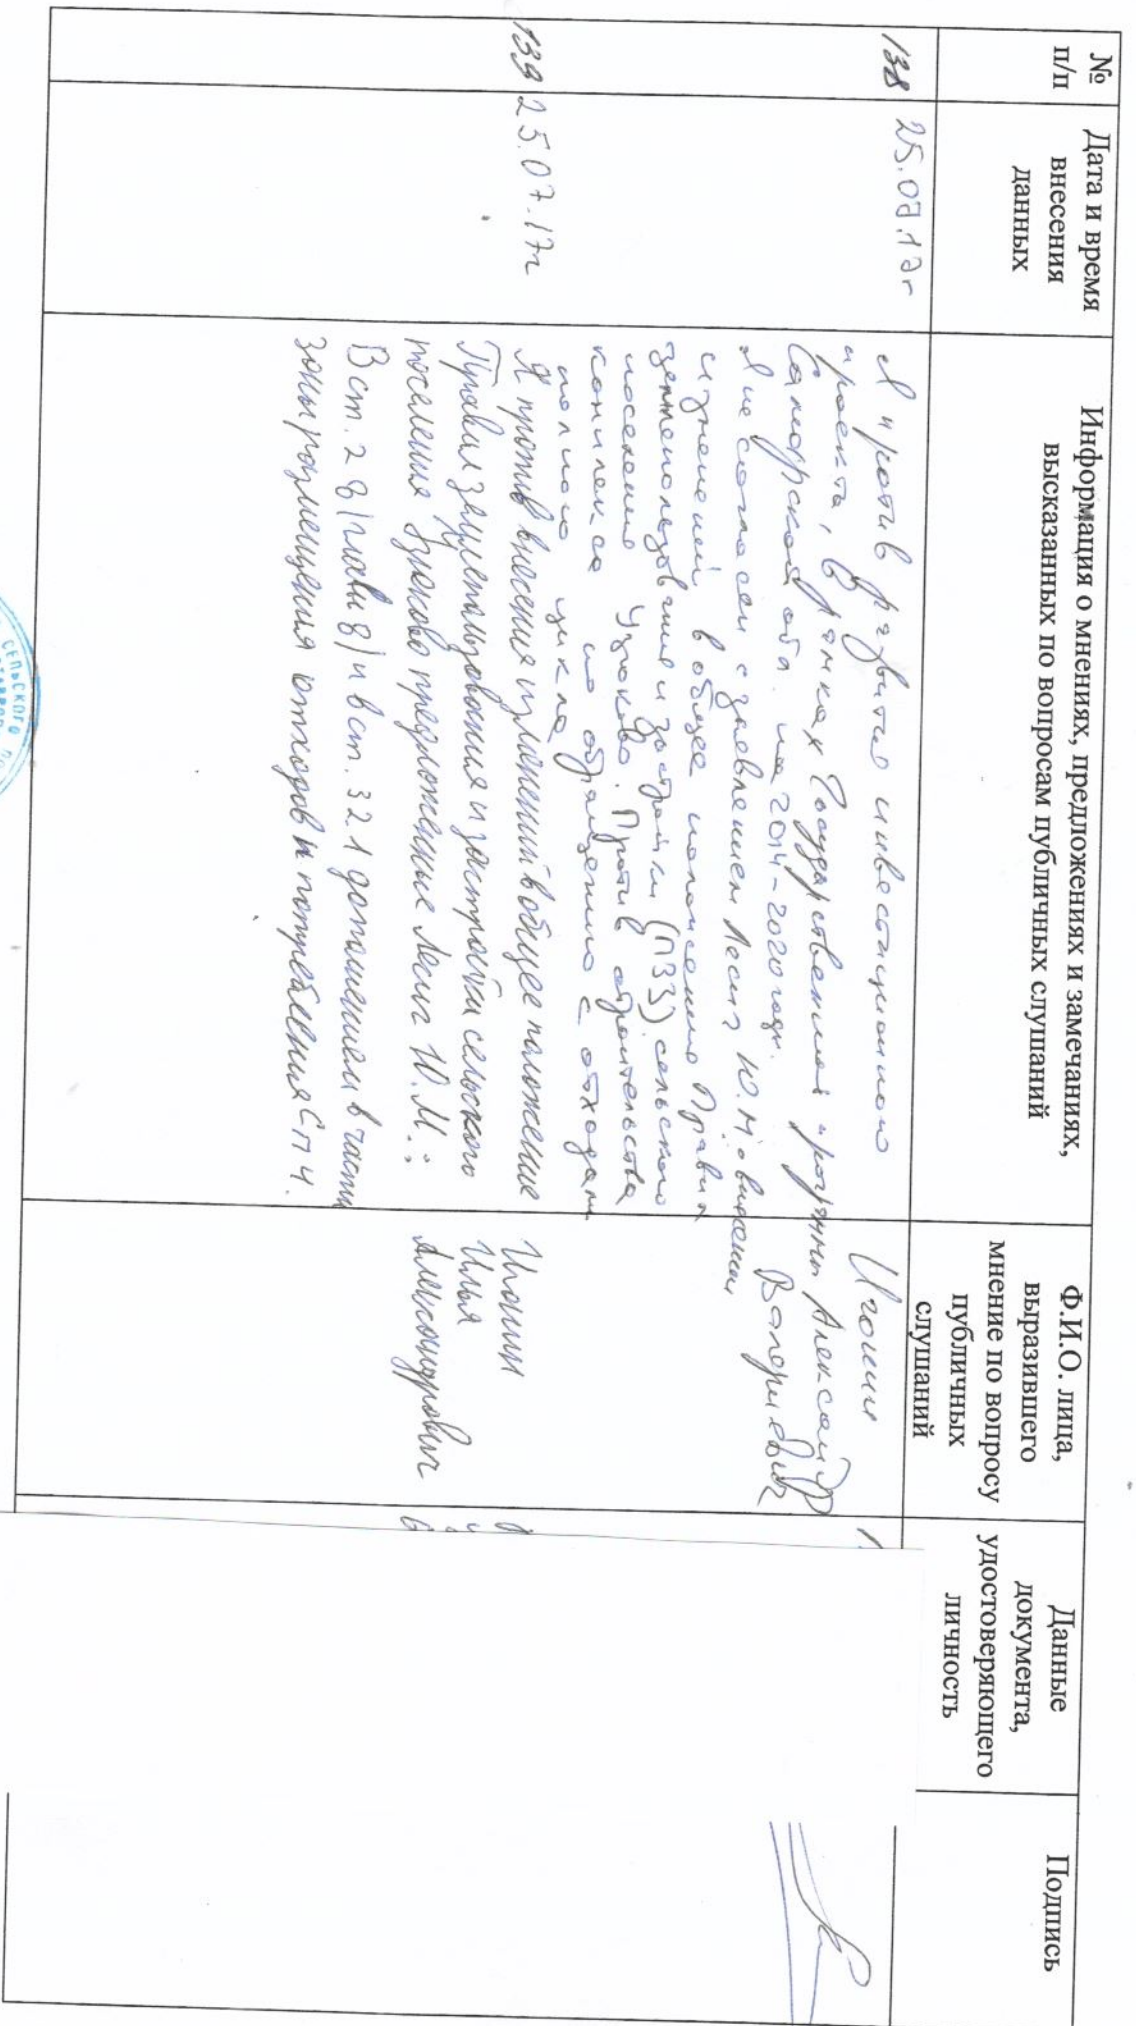 №
п/п
Дата и время
внесения
данных
Информация о мнениях, предложениях и замечаниях,
высказанных по вопросам публичных слушаний
Ф.И.О. лица,
выразившего
мнение по вопросу
публичных
слушаний
Данные
документа,
удостоверяющего
личность
Подпись
138
25.07.17г
Я против развитию инвестиционного
проекта, в рамках Государственной программы
Самарской обл. на 2014-2020 годы.
Я не согласен с заявлением Лесиг Ю.М. о внесении
изменений в общее положению Правил
землепользования и застройки (ПЗЗ) сельского
поселению Узюково. Против строительства
комплекса по обращению с отходами
полного цикла
Игонин
Александр
Валерьевич
139
25.07.17г
Я против внесения изменений в общее положение
Правил землепользования и застройки сельского
поселения Узюково предложенные Лесиг Ю.М.:
В ст. 28 (главы 8) и в ст. 32.1 дополнением в части
зоны размещения отходов и потребления СП4.
Илья
Александрович
СЕЛЬСКОГО